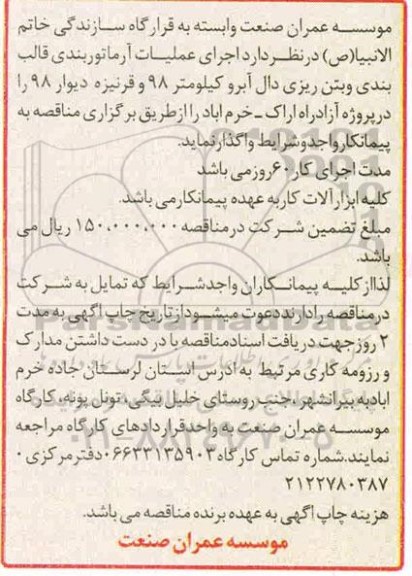 موسسه عمران صنعت وابسته به قرارگاه سازندگی خاتم
الانبیا(ص) درنظردارد اجرای عملیات آرماتوربندی قالب
بندی وبتن ریزی دال آبرو کیلومتر ۹۸ و قرنیزه دیوار ۹۸ را
درپروژه آزادراه اراک - خرم اباد را ازطریق برگزاری مناقصه به
پیمانکارواجدوشرایط واگذارنماید.
مدت اجرای کار ۶۰روزمی باشد
کلیه ابزارآلات کاربه عهده پیمانکارمی باشد.
مبلغ تضمین شرکت درمناقصه ۱۵۰،۰۰۰،۰۰۰ ریال می
باشد.
لذاازکلیه پیمانکاران واجدشرایط که تمایل به شرکت
درمناقصه رادارنددعوت میشودازتاریخ چاپ آگهی به مدت
۲ روزجهت دریافت اسنادمناقصه با در دست داشتن مدارک
و رزومه کاری مرتبط به ادرس استان لرستان جاده خرم
ابادبه بیرانشهر،جنب روستای خلیل بیگی،تونل پونه،کارگاه
موسسه عمران صنعت به واحدقراردادهای کارگاه مراجعه
نمایند.شماره تماس کارگاه ۰۶۶۳۳۱۳۵۹۰۳دفترمرکزی ۰
۲۱۲۲۷۸۰۳۸۷
هزینه چاپ آگهی به عهده برنده مناقصه می باشد.
موسسه عمران صنعت
ParsNamadData